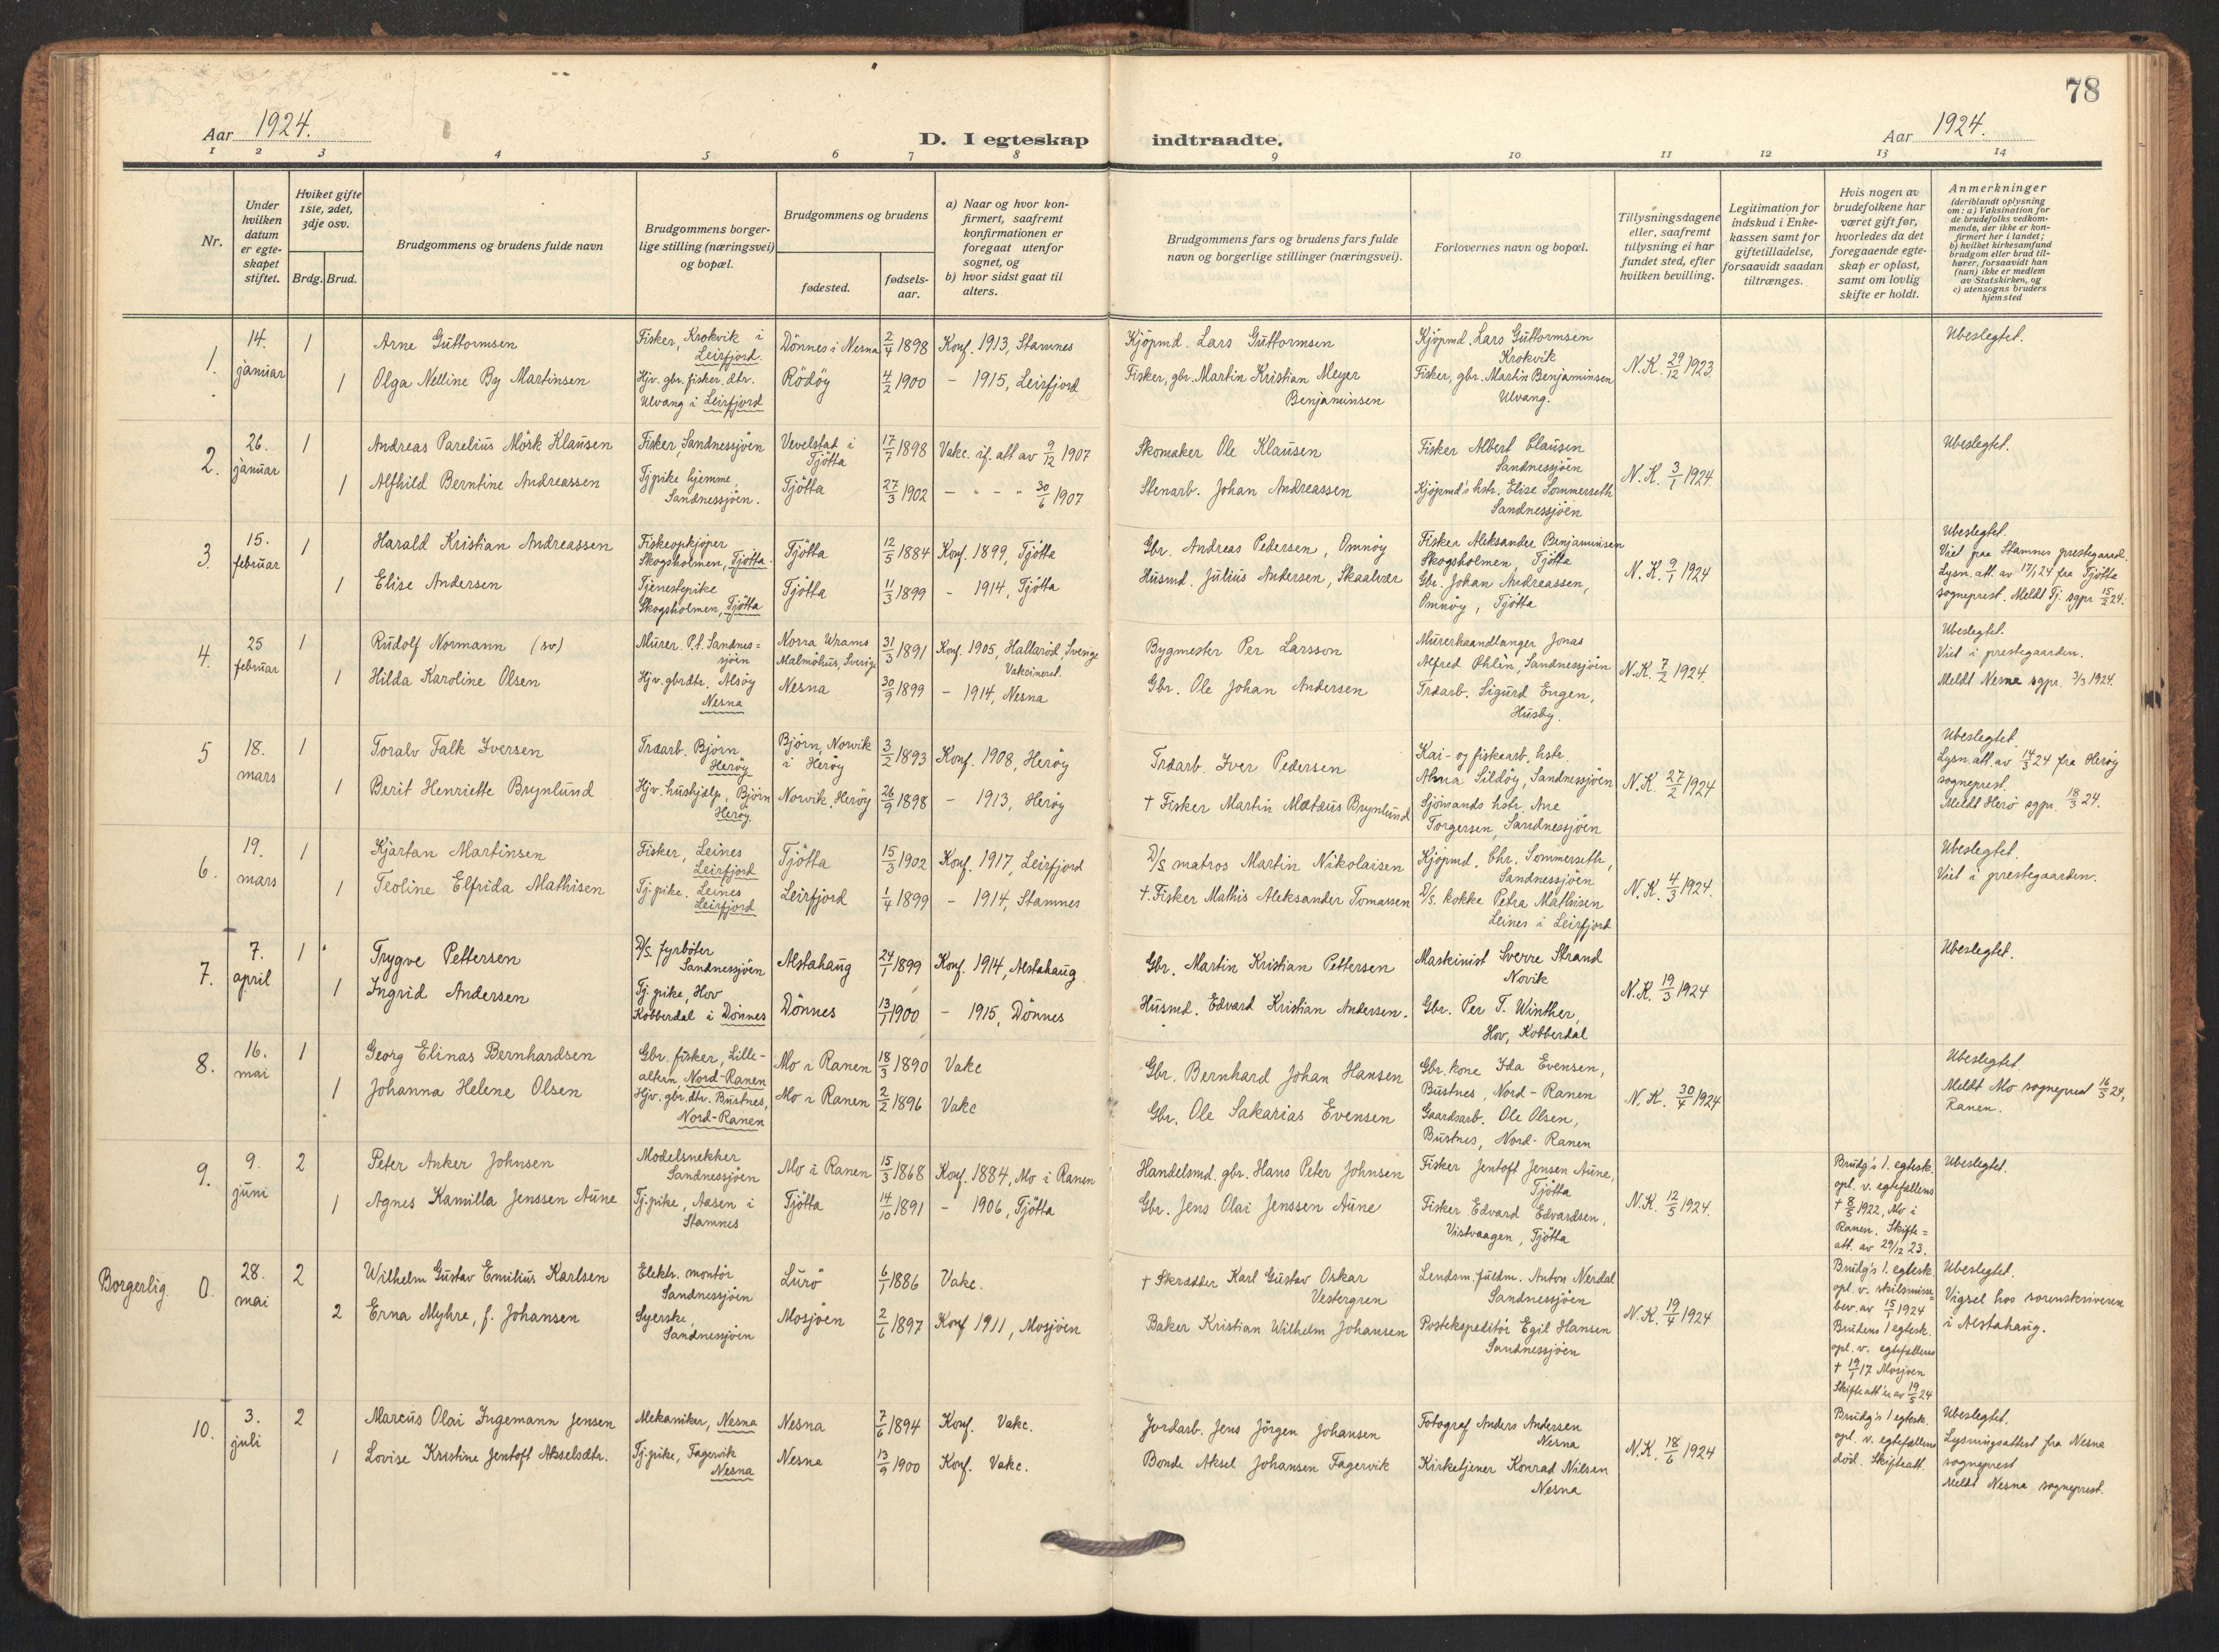 78
Aar 1924.
D. I egteskap indtraadte.
Aar 1924.
1 2 3 4 5 6 7 8 9 10 11 12 13 14
Nr.
Under hvilken datum er egteskapet stiftet.
Hviket gifte 1ste, 2det, 3dje osv.
Brdg. Brud.
Brudgommens og brudens fulde navn
Brudgommens borgerlige stilling (næringsvei) og bopæl.
Brudgommens og brudens
fødested.
fødselsaar.
a) Naar og hvor konfirmert, saafremt konfirmationen er foregaat utenfor sognet, og
b) hvor sidst gaat til alters.
Brudgommens fars og brudens fars fulde navn og borgerlige stillinger (næringsvei).
Forlovernes navn og bopæl.
Tillysningsdagene eller, saafremt tillysning ei har fundet sted, efter hvilken bevilling.
Legitimation for indskud i Enkekassen samt for giftetilladelse, forsaavidt saadan tiltrænges.
Hvis nogen av brudefolkene har været gift før, hvorledes da det foregaaende egteskap er opløst, samt om lovlig skifte er holdt.
Anmerkninger (deriblandt oplysning om: a) Vaksination for de brudefolks vedkommende, der ikke er konfirmert her i landet; b) hvilket kirkesamfund brudgom eller brud tilhører, forsaavidt han (hun) ikke er medlem av Statskirken, og c) utensogns bruders hjemsted
1. 14. januar 1 Arne Guttormsen Fisker, Krokvik i Leirfjord. Dönnes i Nesna 2/4 1898 Konf. 1913, Stamnes Kjöpmd. Lars Guttormsen Kjöpmd. Lars Guttormsen Krokvik N.K. 29/12 1923. Ubeslegtet.
1 Olga Nelline By Martinsen Hjv. gbr. fisker. dtr. Ulvang i Leirfjord Rödöy 4/2 1900 - 1915, Leirfjord Fisker, gbr. Martin Kristian Meyer Benjaminsen Fisker, gbr. Martin Benjaminsen Ulvang.
2. 26. januar 1 Andreas Parelius Mörk Klausen Fisker, Sandnessjöen Vevelstad i Tjötta 17/7 1898 Vakc. if. att av 9/12 1907 Skomaker Ole Klausen Fisker Albert Clausen Sandnessjöen N.K. 3/1 1924. Ubeslegtet.
1 Alfhild Berntine Andreassen Tj.pike hjemme, Sandnessjöen. Tjötta 27/3 1902 - " - " 30/6 1907 Stenarb. Johan Andreassen Kjöpmd's hstr. Elise Sommerseth Sandnessjöen
3. 15. februar 1 Harald Kristian Andreassen Fiskeopkjöper Skogsholmen, Tjötta. Tjötta 12/5 1884 Konf. 1899, Tjötta Gbr. Andreas Pedersen, Omnöy Fisker Aleksander Benjaminsen Skogsholmen, Tjötta N.K. 9/1 1924 Ubeslegtet. Viet paa Stamnes prestegaard. Lysn. att. av 17/1 24 fra Tjötta sogneprest. Meldt Tj. sgpr 15/2 24.
1 Elise Andersen Tjenestepike Skogsholmen, Tjötta Tjötta 11/3 1899 - 1914, Tjötta Husmd. Julius Andersen, Skaalvær Gbr. Johan Andreassen, Omnöy, Tjötta
4. 25 februar 1 Rudolf Normann (sv) Murer. P.t. Sandnessjöen Norra Wrams Malmöhus, Sverige 31/3 1891 Konf. 1905, Hallaröd, Sverige Vakcineret. Bygmester Per Larsson Murerhaandlanger Jonas Alfred Öhlin, Sandnessjöen N.K. 7/2 1924. Ubeslegtet. Viet i prestegaarden. Meldt Nesna sgpr. 3/3 1924.
1 Hilda Karoline Olsen Hjv. gbrdtr. Alsöy Nesna Nesna 30/9 1899 - 1914, Nesna Gbr. Ole Johan Andersen Træarb. Sigurd Engen, Husby.
5 18. mars 1 Toralv Falk Iversen Træarb. Björn Heröy Björn, Norvik i Heröy 3/2 1893 Konf. 1908, Heröy Træarb. Iver Pedersen Kai- og fiskearb. hstr. Alma Sildöy, Sandnessjöen N.K. 27/2 1924 Ubeslegtet. Lysn. att. av 14/3 24 fra Heröy sogneprest. Meldt Herö sgpr. 18/3 24.
1 Berit Henriette Brynlund Hjv. hushjælp, Björn Heröy. Norvik, Heröy 26/9 1898 - 1913, Heröy † Fisker Martin Matæus Brynlund Sjömands hstr. Ane Torgersen, Sandnessjöen
6. 19. mars 1 Kjartan Martinsen Fisker, Leines Leirfjord Tjötta 15/3 1902 Konf. 1917, Leirfjord D/S matros Martin Nikolaisen Kjöpmd. Chr. Sommerseth, Sandnessjöen N.K. 4/3 1924. Ubeslegtet. Viet i prestegaarden.
1 Teoline Elfrida Mathisen Tj.pike. Leines Leirfjord Leirfjord 1/4 1899 - 1914, Stamnes †. Fisker Mathis Aleksander Tomassen D/S. kokke Petra Mathisen Leines i Leirfjord
7. 7. april 1 Trygve Pettersen D/S. fyrböter Sandnessjöen Alstahaug 24/1 1899 Konf. 1914, Alstahaug Gbr. Martin Kristian Pettersen Maskinist Sverre Strand Novik N.K. 19/3 1924 Ubeslegtet.
1 Ingrid Andersen Tj. pike, Hov Kobberdal i Dönnes Dönnes 13/1 1900 - 1915, Dönnes Husmd. Edvard Kristian Andersen. Gbr. Per T. Winther, Hov, Kobberdal
8. 16. mai 1 Georg Elinas Bernhardsen Gbr. fisker, Lillealtern, Nord-Ranen Mo i Ranen 18/3 1890 Vakc Gbr. Bernhard Johan Hansen Gbr. kone Ida Evensen, Bustnes, Nord-Ranen N.K. 30/4 1924 Ubeslegtet. Meldt Mo sogneprest 16/5 24, Ranen.
1 Johanna Helene Olsen Hjv. gbr.dtr. Bustnes, Nord-Ranen Mo i Ranen 2/2 1896 Vakc Gbr. Ole Sakarias Evensen Gaardsarb. Ole Olsen, Bustnes, Nord-Ranen
9. 9. juni 2 Peter Anker Johnsen Modelsnekker Sandnessjöen Mo i Ranen 15/3 1868 Konf. 1884, Mo i Ranen Handelsmd. gbr. Hans Peter Johnsen Fisker Jentoft Jensen Aune, Tjötta N.K. 12/5 1924. Brudg's 1. egtesk. opl. v. egtefællens † 8/5 1922, Mo i Ranen. Skifteatt. av 29/12 23. Ubeslegtet.
1 Agnes Kamilla Jenssen Aune Tj.pike, Aasen i Stamnes Tjötta 14/10 1891 - 1906, Tjötta Gbr. Jens Olai Jenssen Aune Fisker Edvard Edvardsen, Vistvaagen, Tjötta
Borgerlig. 0. 28. mai 2 Wilhelm Gustav Emilius Karlsen Elektr. montör Sandnessjöen Lurö 6/1 1886 Vakc. † Skrædder Karl Gustav Oskar Vestergren Lendsm. fuldm. Anton Nerdal Sandnessjöen N.K. 19/4 1924 Brudg's 1. egtesk. opl. v. skilsmissebev. av 15/1 1924 Ubeslegtet. Vigsel hos sorenskriveren i Alstahaug.
2 Erna Myhre, f. Johansen Syerske, Sandnessjöen Mosjöen 2/6 1897 Konf 1911, Mosjöen Baker Kristian Wilhelm Johansen Postekspeditör Egil Hansen Sandnessjöen Brudens 1 egtesk. opl. v. egtefællens † 19/1 17 Mosjöen Skifteatt'er av 19/5 24
10. 3. juli 2 Marcus Olai Ingemann Jensen Mekaniker, Nesna Nesna 7/6 1894 Konf. Vakc. Jordarb. Jens Jörgen Johansen Fotograf Anders Andersen Nesna N.K. 18/6 1924 Brudg's 1 egtesk. opl. v. egtefællens död. Skifteatt. Ubeslegtet. Lysningsattest fra Nesna sogneprest Meldt Nesna sogneprest.
1 Lovise Kristine Jentoft Akselsdtr. Tj.pike, Fagervik Nesna Nesna 13/9 1900 Konf. Vakc. Bonde Aksel Johansen Fagervik Kirketjener Konrad Nilsen Nesna